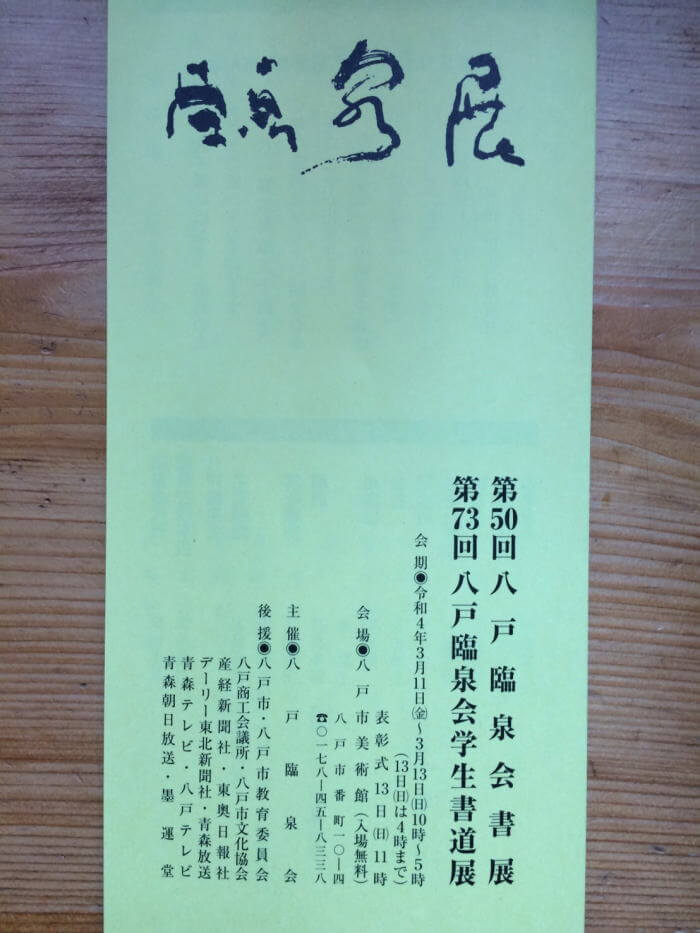 臨泉展
第50回八戸臨泉会書展
第73回八戸臨泉会学生書道展
会期◉令和4年3月11日㈮〜3月13日㈰10時〜5時
(13日㈰は4時まで)
表彰式13日㈰11時
会場◉八戸市美術館(入場無料)
八戸市番町一〇ー四
☎〇一七八ー四五ー八三三八
主催◉八戸臨泉会
後援◉八戸市・八戸市教育委員会
八戸商工会議所・八戸市文化協会
産経新聞社・東奥日報社
デーリー東北新聞社・青森放送
青森テレビ・八戸テレビ
青森朝日放送・墨運堂